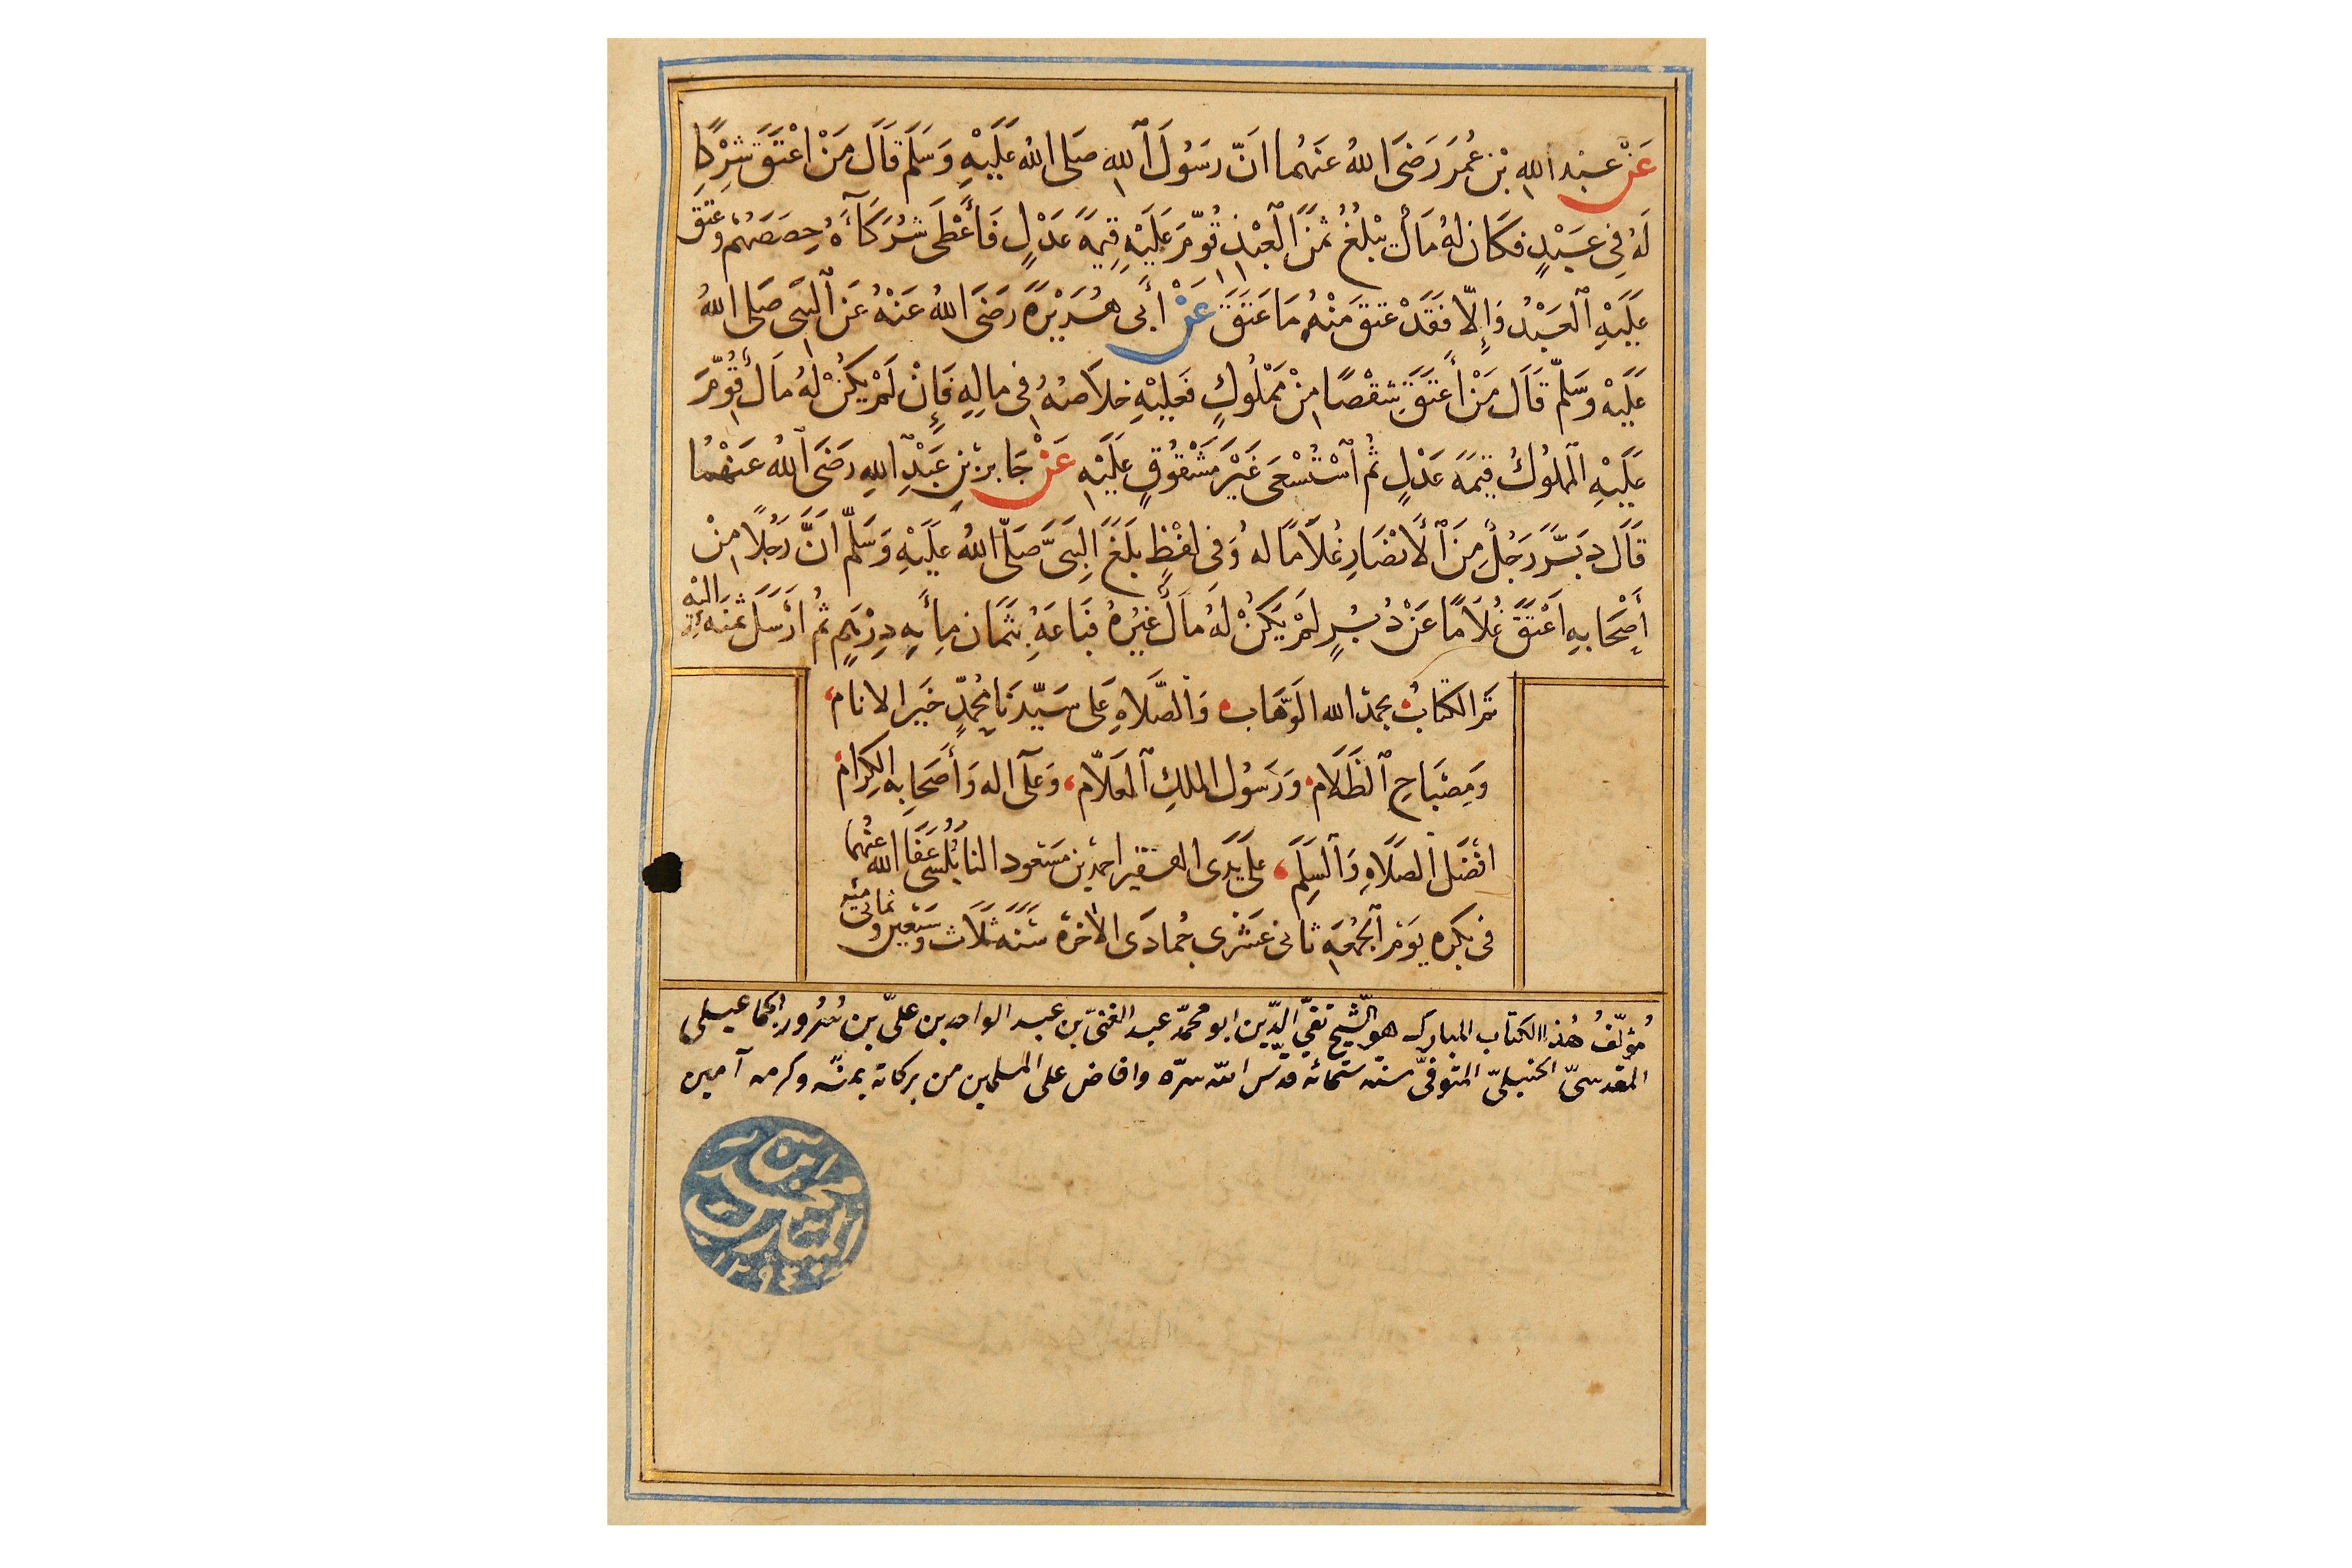 عَنْ عبد الله بْن عُمَرَ رَضَىَ اللهُ عنهُما انّ رسَوُلَ ٱلله صَلى اللهُ عَلَيْهِ وَسَلَم قَالَ مَنْ اعْتَقَ شِرْكًا
لَهُ فِى عَبْدٍ فكَانَ لهُ مَالٌ يَبْلغُ ثمَنَ ٱلعَبْدِ قُوّمَ عَلَيْهِ قيمَةَ عَدْلٍ فَأَعْطَى شُرَكَآءَهُ حِصَصَهُمْ وعتق
عَلَيْهِ ٱلعَبْدُ وَإِلّا فَقَدْ عتق مِنْهُ مَا عَتَقَ عَنْ أَبى هُرَيْرَةَ رَضَىَ اللهُ عَنْهُ عَن ٱلنبَى صَلى اللهُ
عَلَيْهِ وَسَلّم قَالَ مَنْ أَعتَقَ شِقْصًا مِنْ مَمْلُوكٍ فعَلَيْهِ خلاَصُهُ فى مالِهِ فَإِنْ لَمْ يَكُنْ لَهُ مَالٌ قُوّمَ
عَلَيْهِ ٱلمملوُكُ قيمَةَ عَدْلٍ ثُم ٱسْتُسْعَى غَيْرَ مَشْقُوُقٍ عَلَيْهِ عَنْ جَابر بْنِ عَبْدِ اللهِ رضَىَ ٱللهُ عَنهُمَا
قَالَ دَبَّرَ رَجُلٌ مِنَ ٱلأَنْصَارِ غُلاَمًا له وَفى لفْظٍ بلَغَ النِبَىَّ صَلَّى اللهُ عَليْهِ وَسَلّم انَّ رَجُلًا مِنْ
أَصْحَابهِ اَعْتَقَ غُلاَمًا عَنْ دُبُرٍ لمْ يَكُنْ لَهُ مَالٌ غيرُهُ فبَاعَهُ بثَمَان مِأَيهِ دِرْهَمٍ ثُم أَرسَلَ ثمنَه اليْهِ
تمَ الكتَابُ بحمد الله الوَهَاب وَالصَّلاَةِ عَلى سَيّدنَا مُحمدٍّ خيَر الانام
وَمِصْبَاحِ ٱلظَلاَم وَرَسُول الملكِ ٱلعَلاّم وَعلَى اله وَأَصَحَابِه الكِرام
افْضَل ٱلصَلاَةِ وَٱلسِلَمَ علَى يَدَى الفقير احمد بن مَسَعود النابُلُسىَ عَفَا الله عنهُما
فى بكرة يوَم ٱلجُمُعَةِ ثانى عَشرى جُمادَى الاخرة سَنَه ثلَاَث وَسَبَعين وثمانى مئه
مُؤلّفُ هٰذا الكتاب المبارك هو الشّيخ تقىّ الدّين ابو محمّد عبد الغنىّ بن عبد الواحد بن علىّ بن سُرُور الجمّاعيلى
المقدسىّ الحنبلىّ المتوفىّ سنة ستمائه قدّس الله سرّه وافاض على المسلمين من بركاته بمنّه وكرمه آمين
١٢٩٤